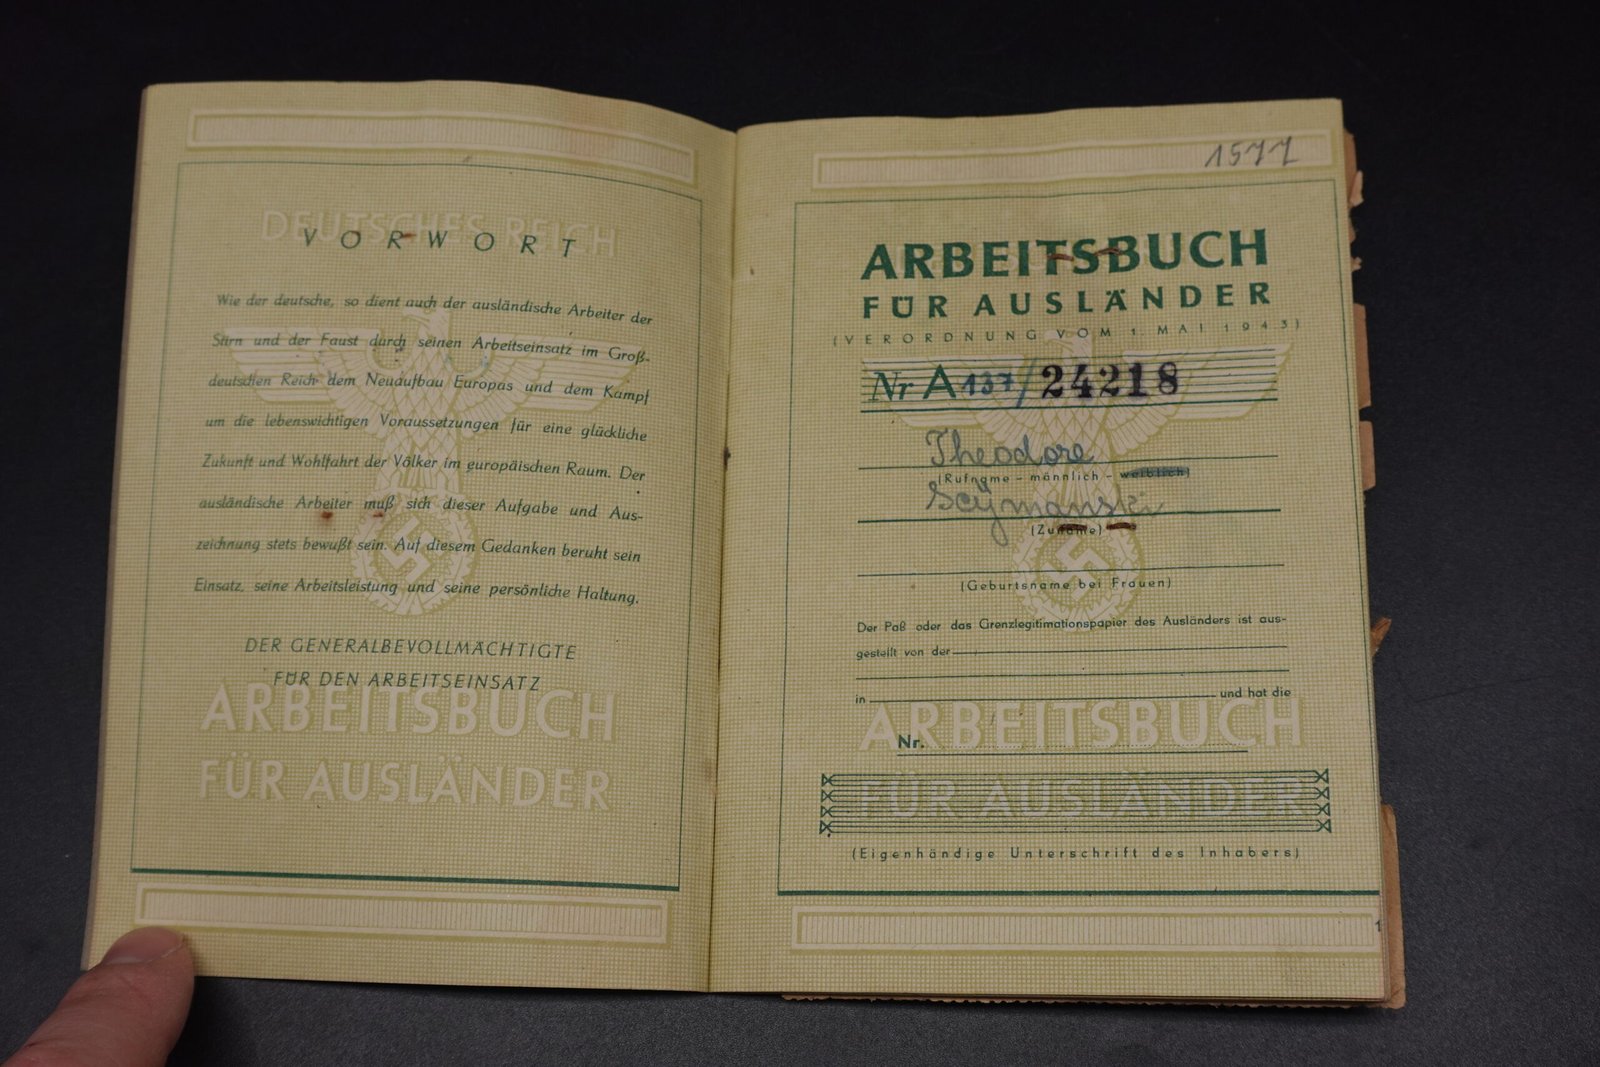 DEUTSCHES REICH
VORWORT
Wie der deutsche, so dient auch der ausländische Arbeiter der
Stirn und der Faust durch seinen Arbeitseinsatz im Groß-
deutschen Reich dem Neuaufbau Europas und dem Kampf
um die lebenswichtigen Voraussetzungen für eine glückliche
Zukunft und Wohlfahrt der Völker im europäischen Raum. Der
ausländische Arbeiter muß sich dieser Aufgabe und Aus-
zeichnung stets bewußt sein. Auf diesem Gedanken beruht sein
Einsatz, seine Arbeitsleistung und seine persönliche Haltung.
DER GENERALBEVOLLMÄCHTIGTE
FÜR DEN ARBEITSEINSATZ
ARBEITSBUCH
FÜR AUSLÄNDER
1577
ARBEITSBUCH
FÜR AUSLÄNDER
(VERORDNUNG VOM 1. MAI 1943)
Nr A 137/24218
Theodore
(Rufname – männlich – weiblich)
Scymanski
(Zuname)
(Geburtsname bei Frauen)
Der Paß oder das Grenzlegitimationspapier des Ausländers ist aus-
gestellt von der
in und hat die
ARBEITSBUCH
Nr.
FÜR AUSLÄNDER
(Eigenhändige Unterschrift des Inhabers)
1